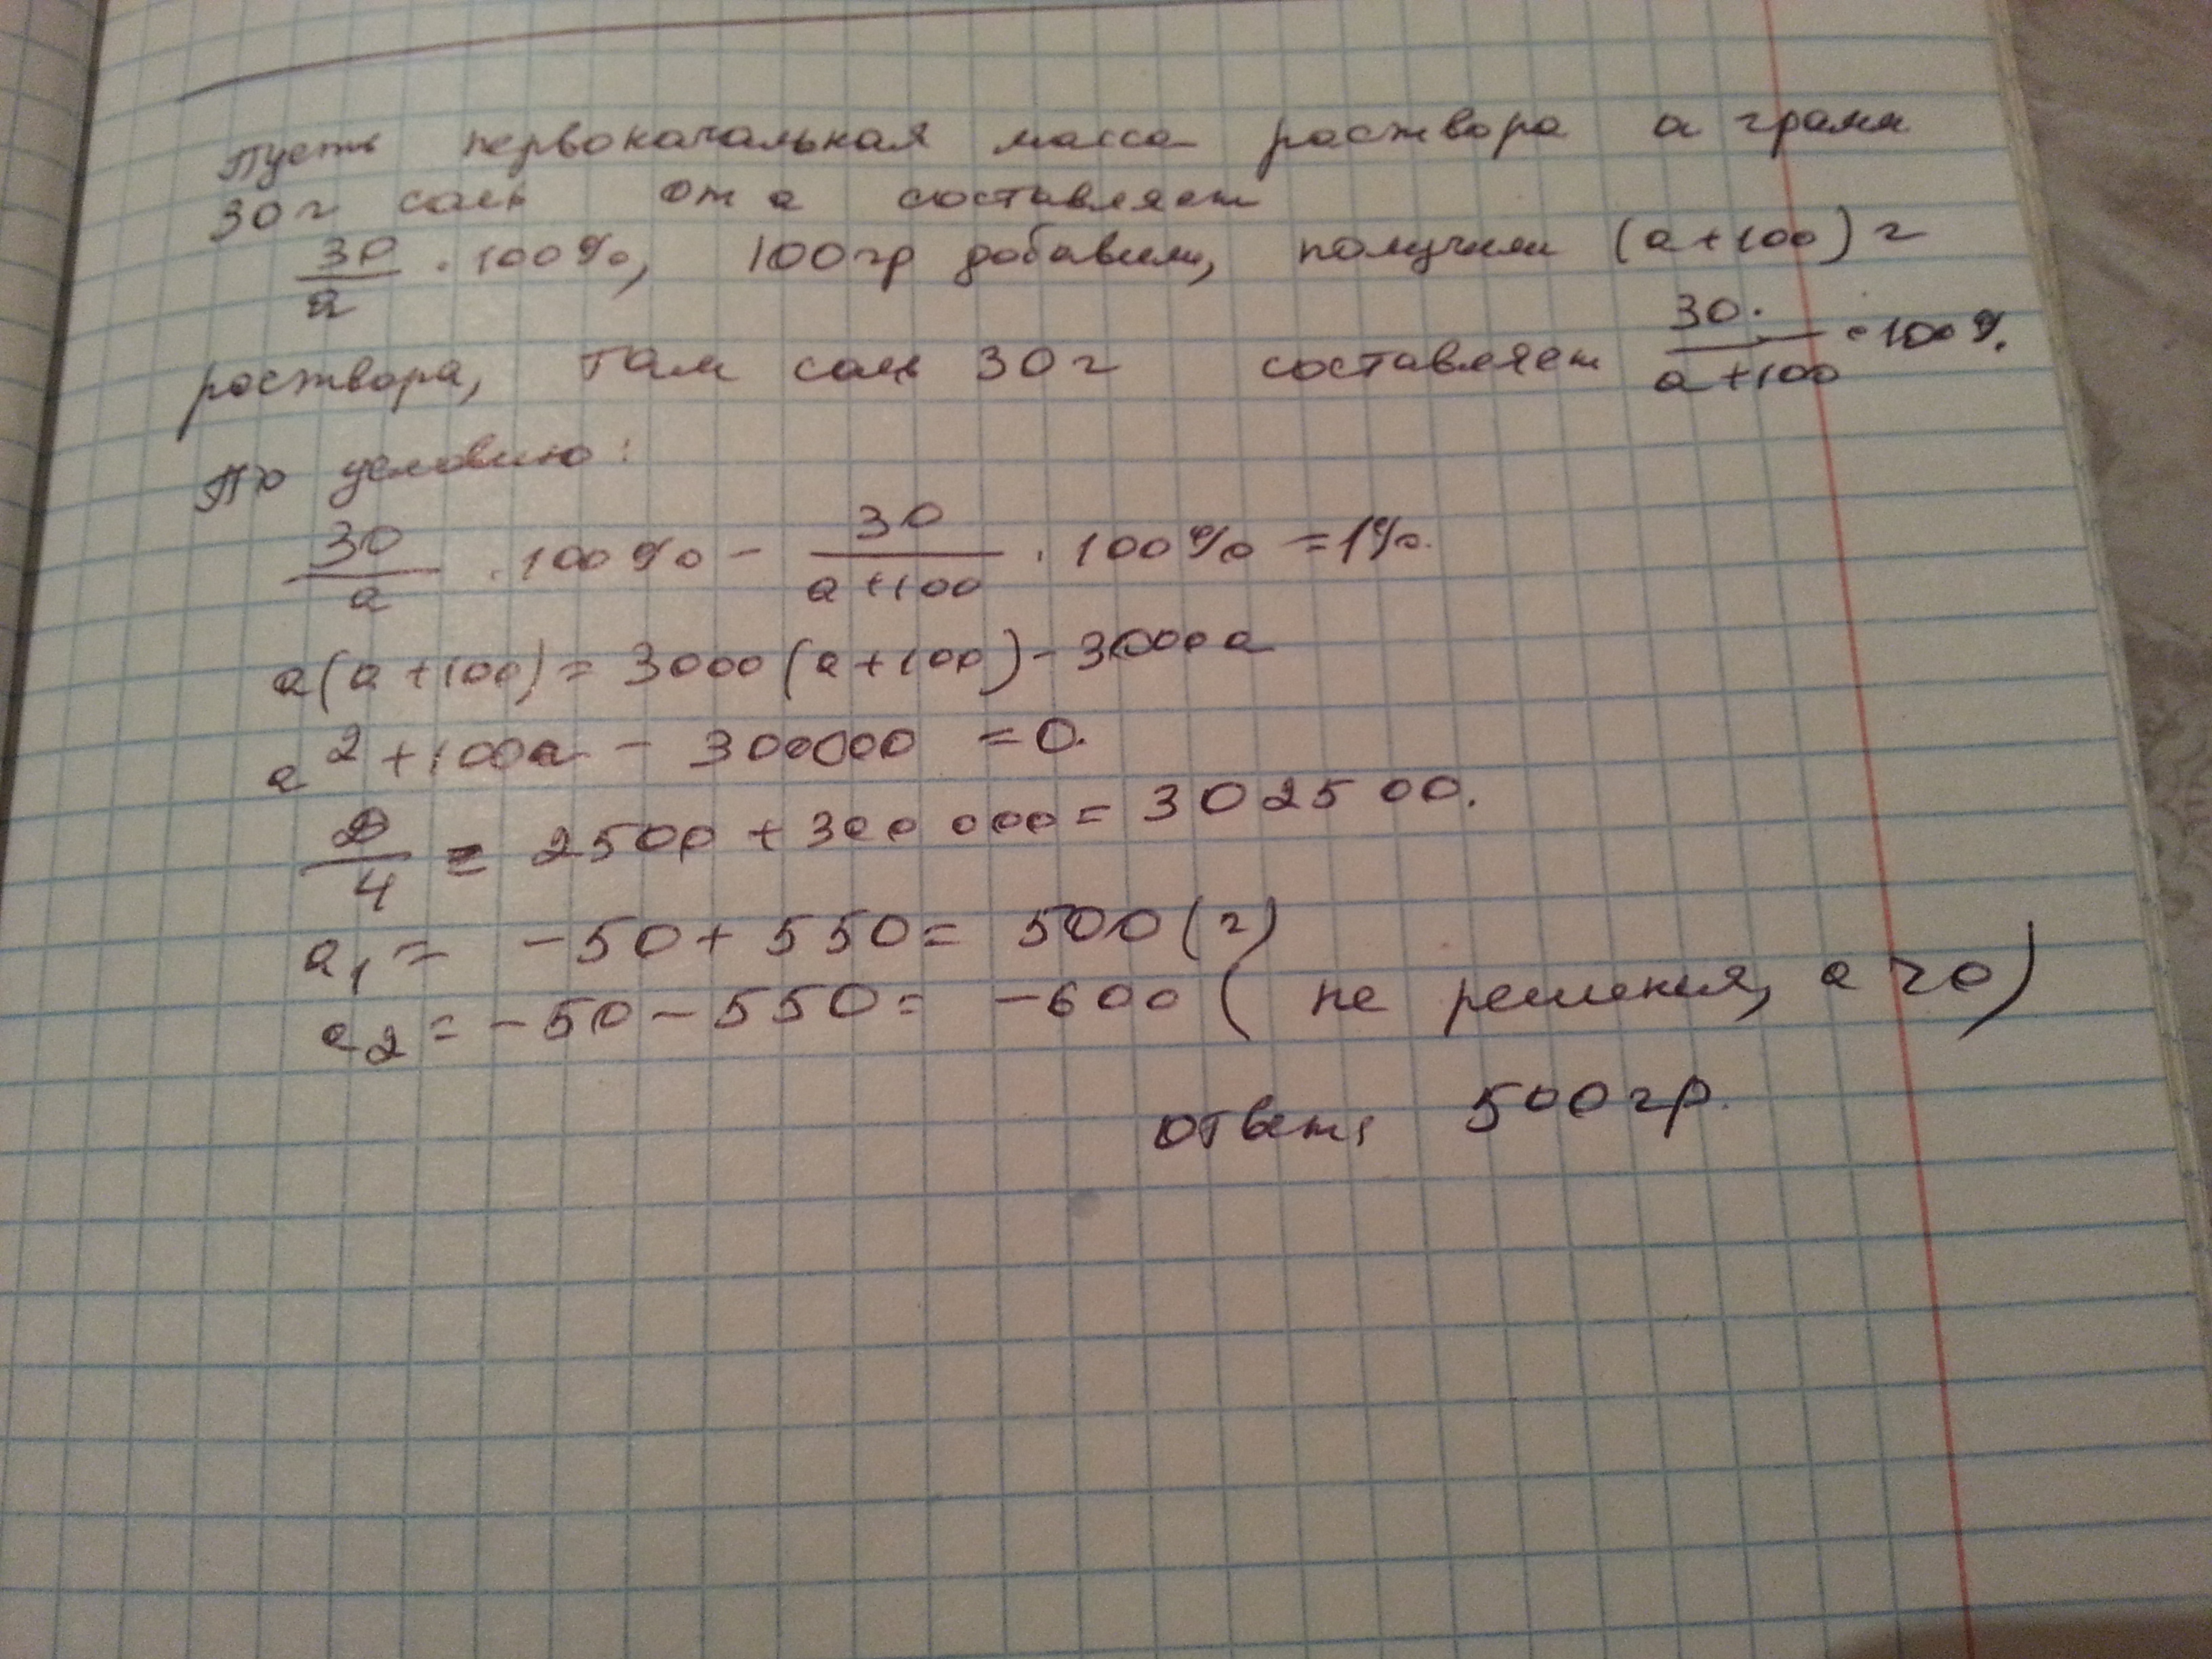 Пусть первоначальная масса раствора а грамм
30 г соль от а составляет
30/a · 100%, 100гр добавили, получили (а+100) г
раствора, там соль 30 г составляет 30./a+100 · 100%.
По условию:
30/a · 100% - 30/a+100 · 100% = 1%.
a(a+100) = 3000(a+100) - 3000a
a² + 100a - 300000 = 0.
D/4 = 2500 + 300 000 = 302500.
a₁ = -50 + 550 = 500 (г)
a₂ = -50 - 550 = -600 ( не решения, a > 0)
ответ: 500гр.